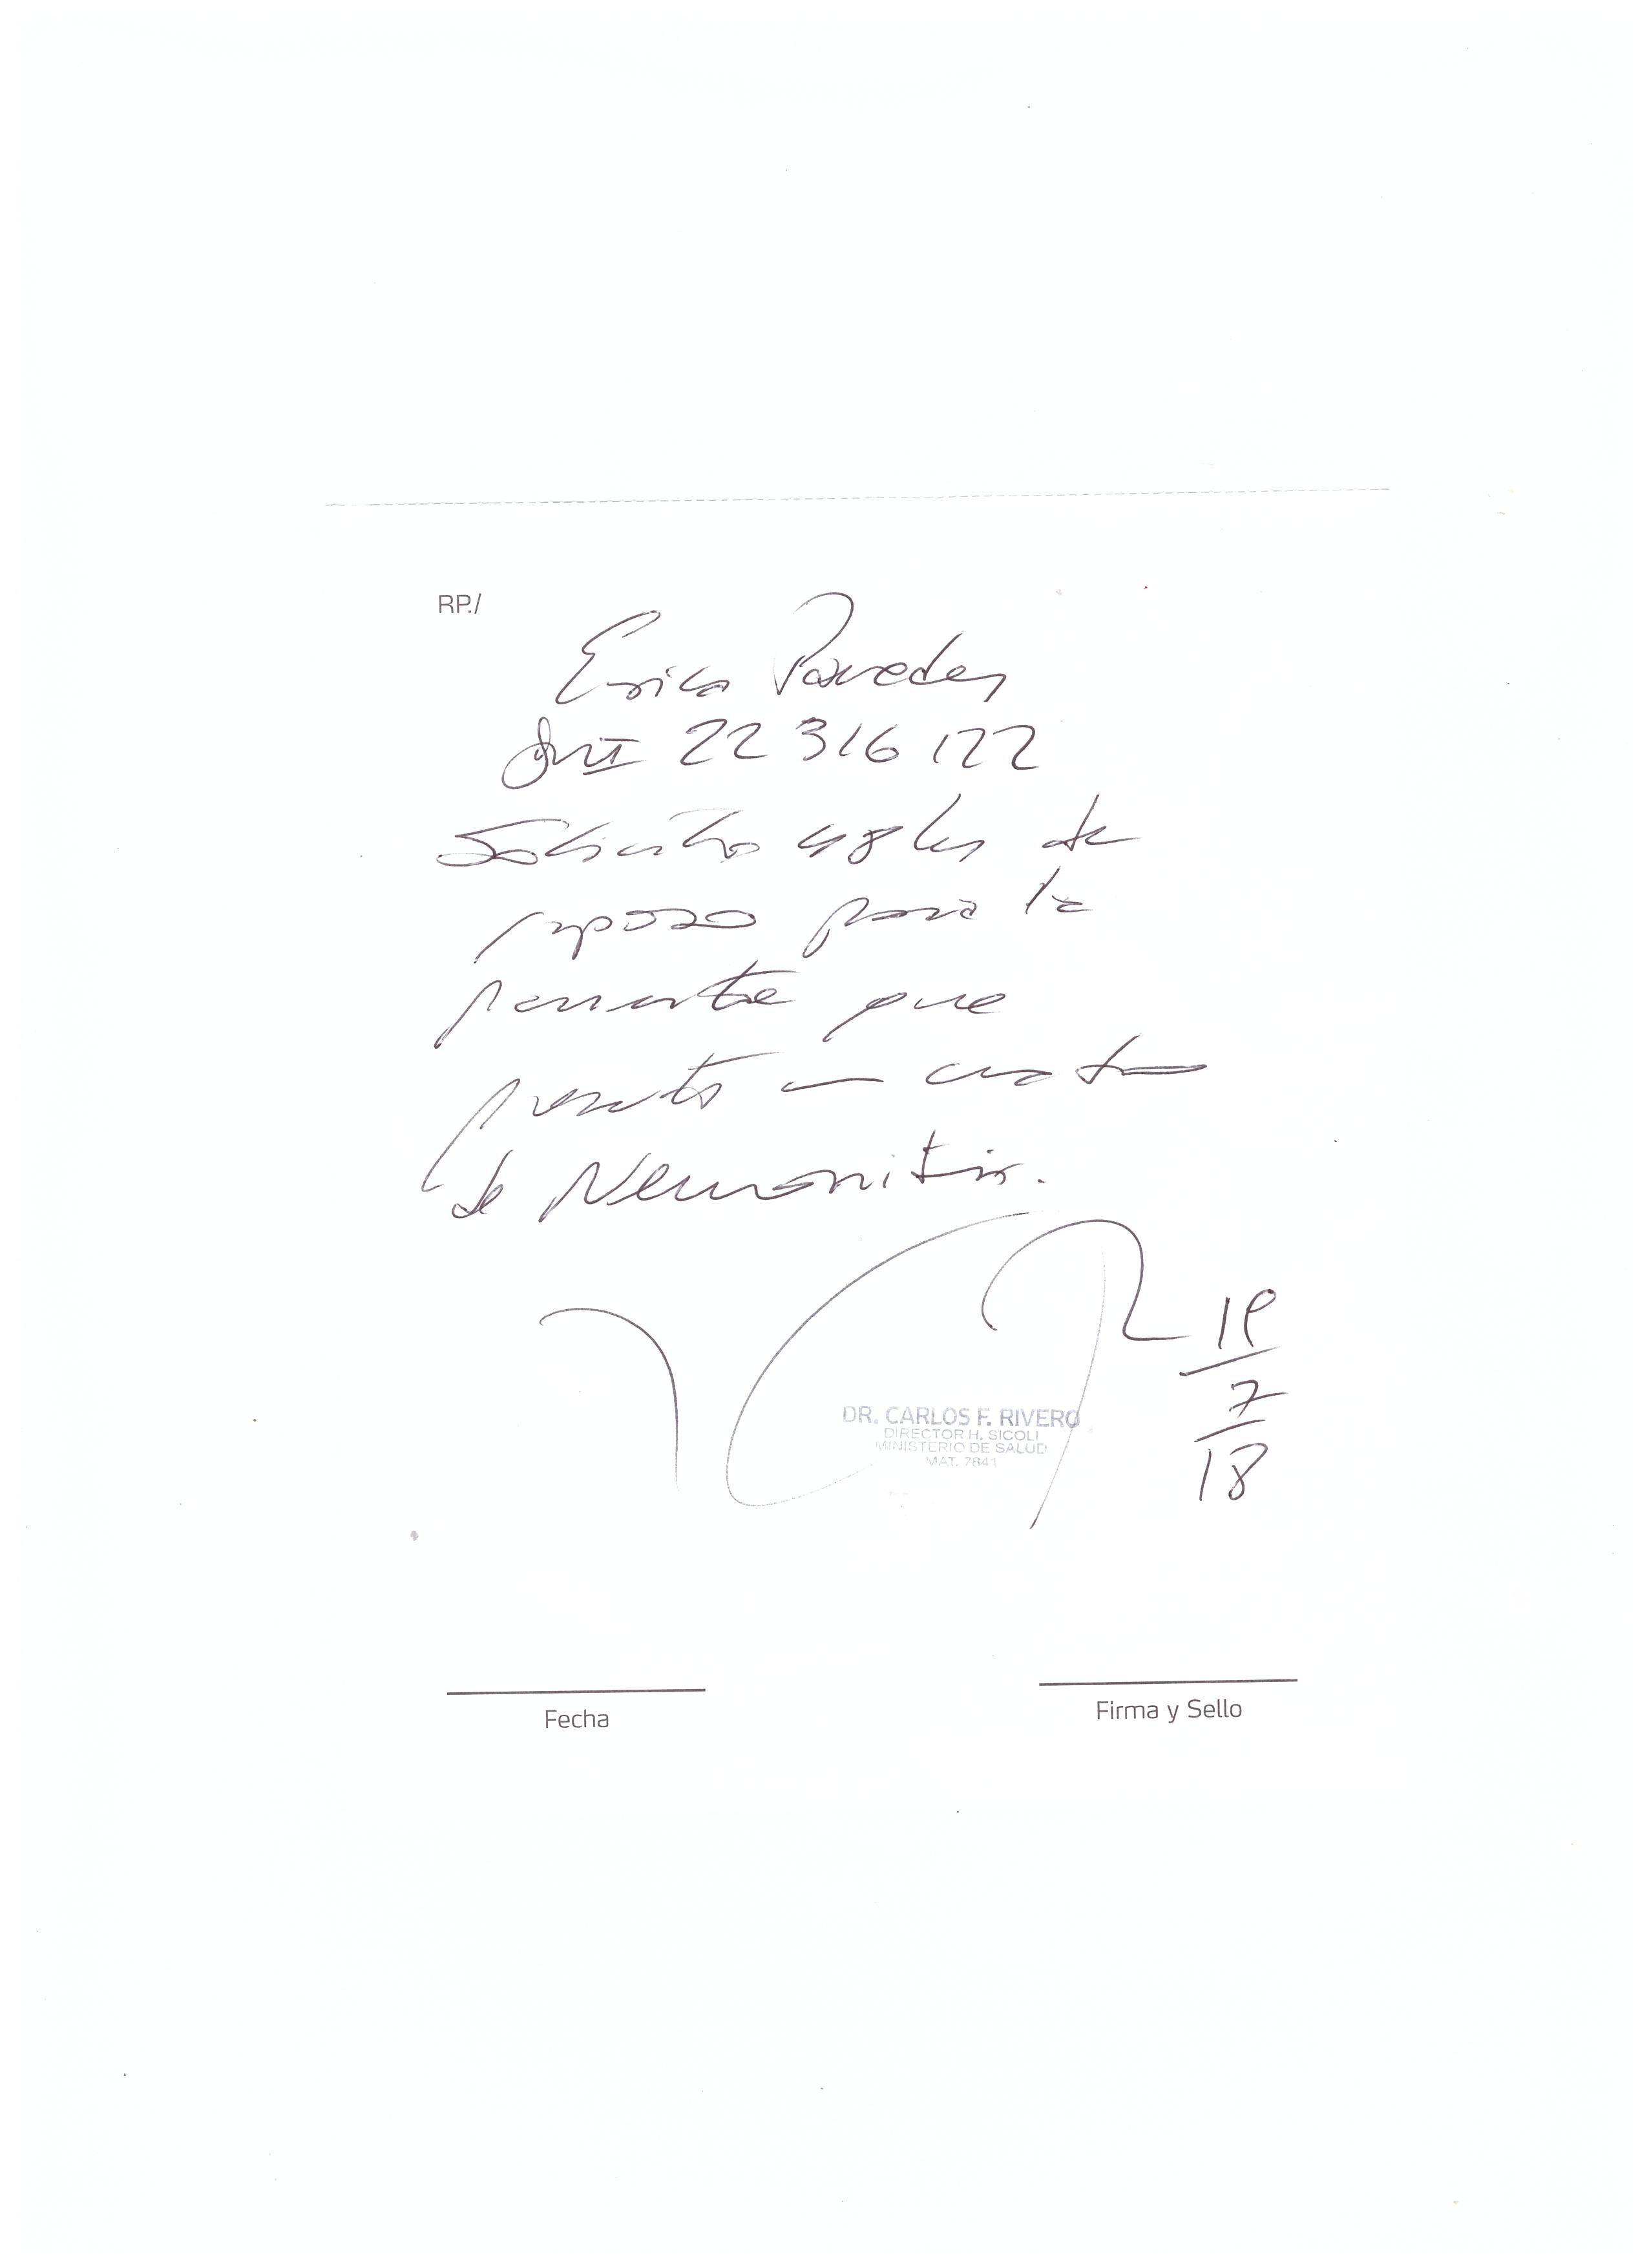 RP./
Erica Paredes
DNI 22 316 122
Solicito 48 hs de
reposo para la
paciente que
presenta un cuadro
de Neumonitis.
19
7
18
DR. CARLOS F. RIVERO
DIRECTOR H. SICOLI
MINISTERIO DE SALUD
MAT. 7841
Fecha
Firma y Sello